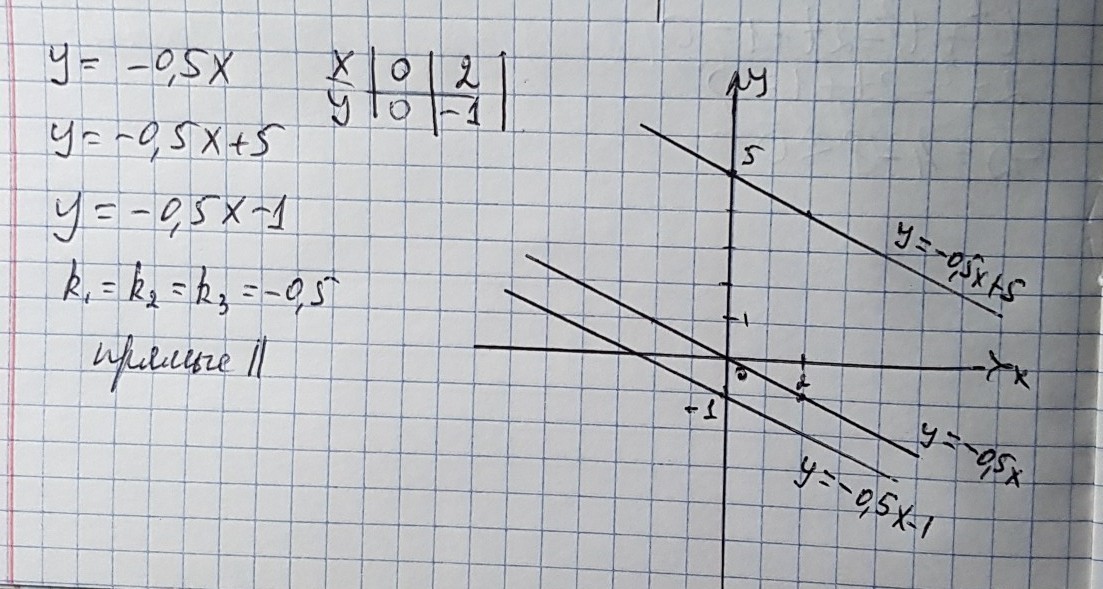 y = -0,5x
x | 0 | 2 |
y | 0 | -1 |
y = -0,5x+5
y = -0,5x-1
k₁ = k₂ = k₃ = -0,5
прямые ||
y
5
y = -0,5x+5
1
0
2
x
-1
y = -0,5x
y = -0,5x-1